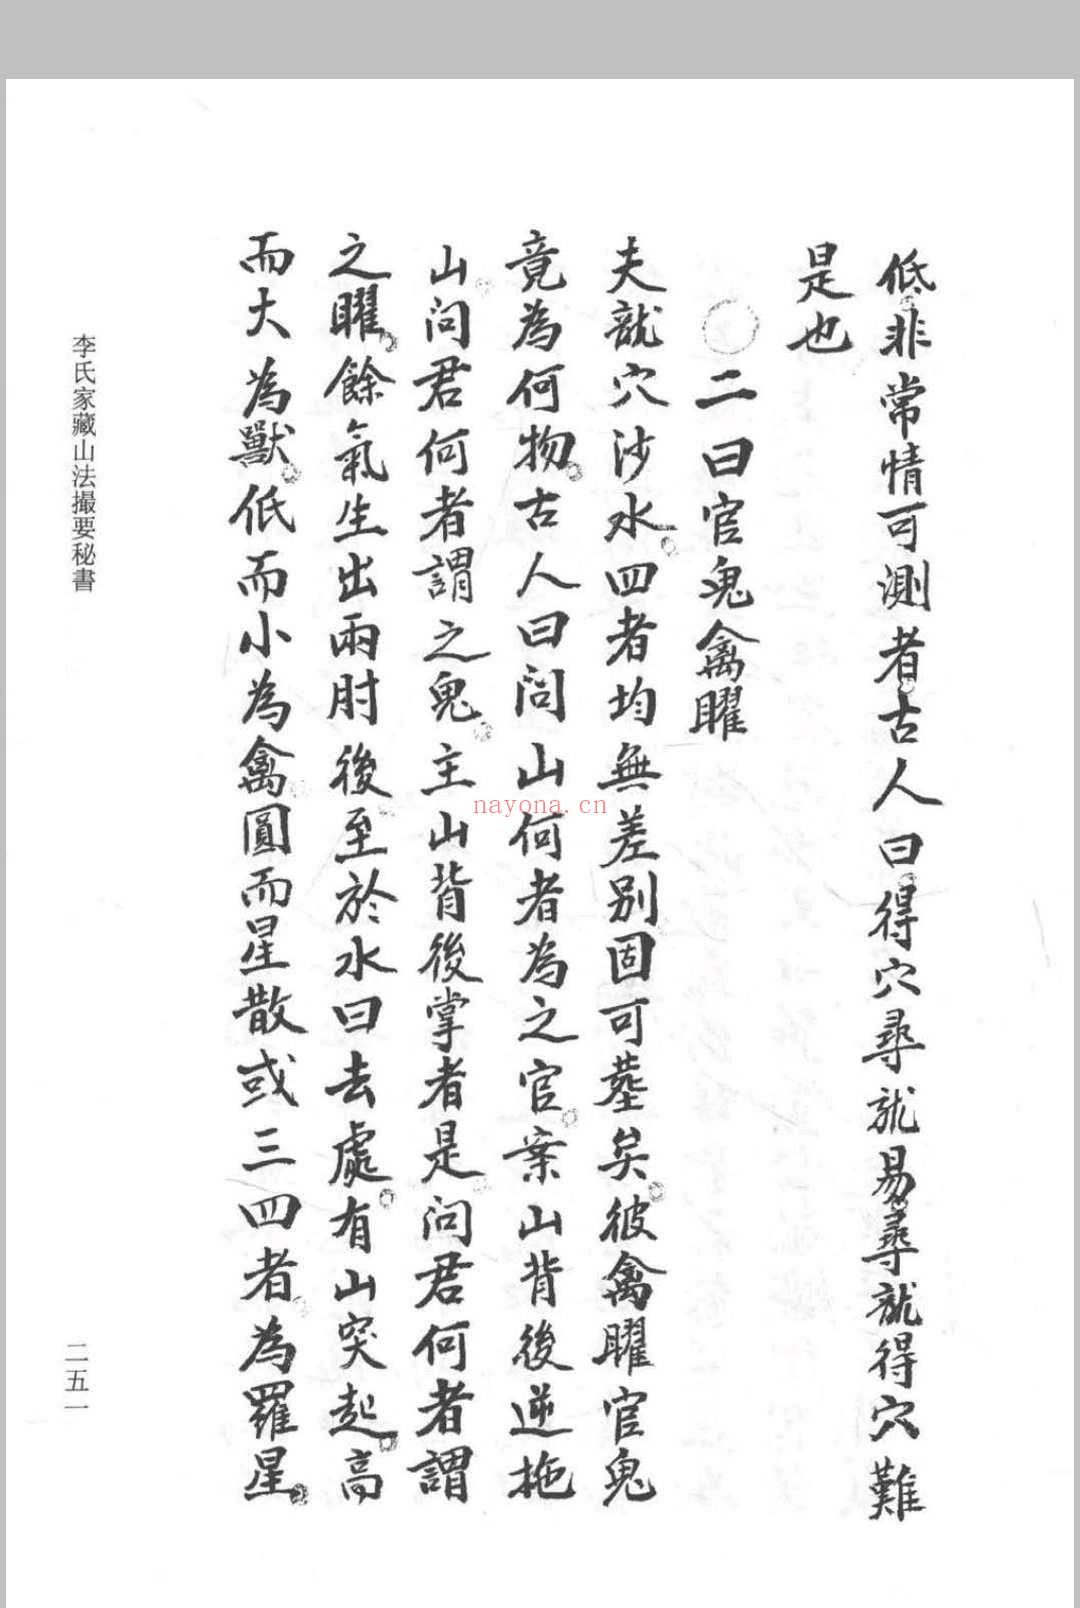 低非常情可測者古人曰得穴尋龍易尋龍得穴難
是也
二曰官鬼禽曜
夫龍穴沙水四者均無差別固可塟矣彼禽曜官鬼
竟為何物古人曰問山何者為之官案山背後逆拖
山問君何者謂之鬼主山背後掌者是問君何者謂
之曜餘氣生出兩肘後至於水曰去處有山突起高
而大為獸低而小為禽圓而星散或三四者為羅星
李氏家藏山法撮要秘書
二五一
nayona.cn